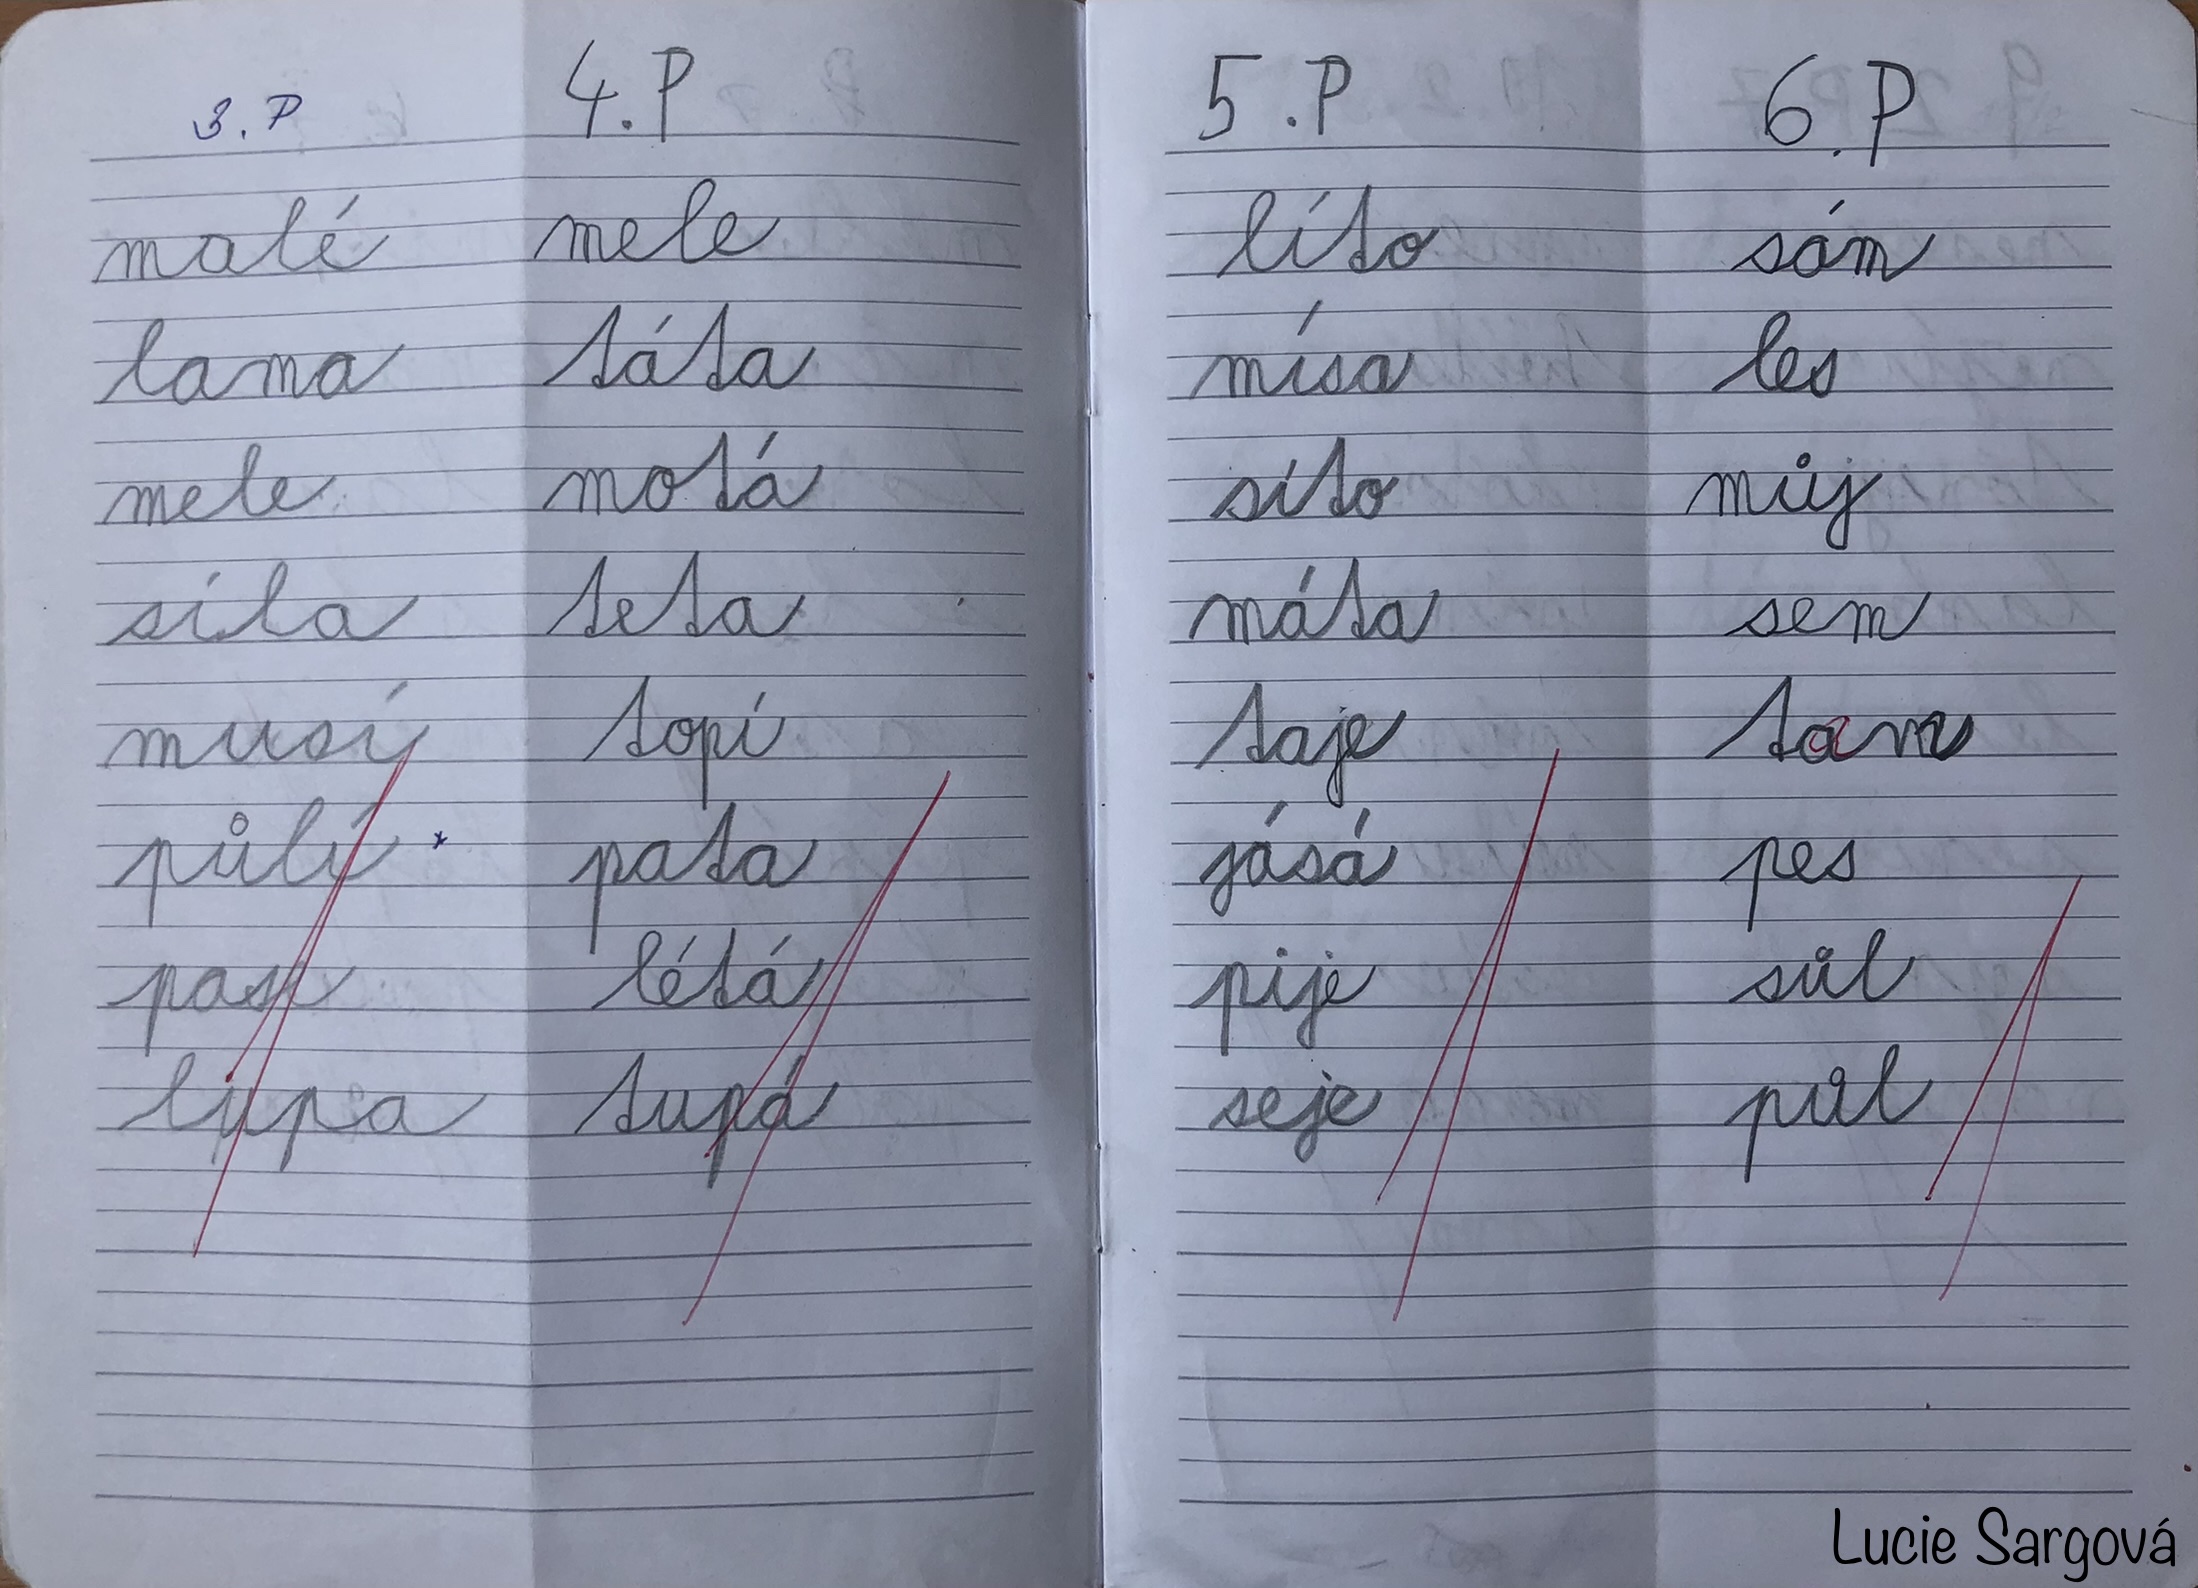 3.P
malé
lama
mele
síla
musí
půlí *
pasy
lupa
4.P
mele
táta
motá
teta
topí
pata
létá
tupá
5.P
líto
mísa
síto
máta
taje
jásá
pije
seje
6.P
sám
les
můj
sem
tam
pes
sůl
půl
Lucie Sargová